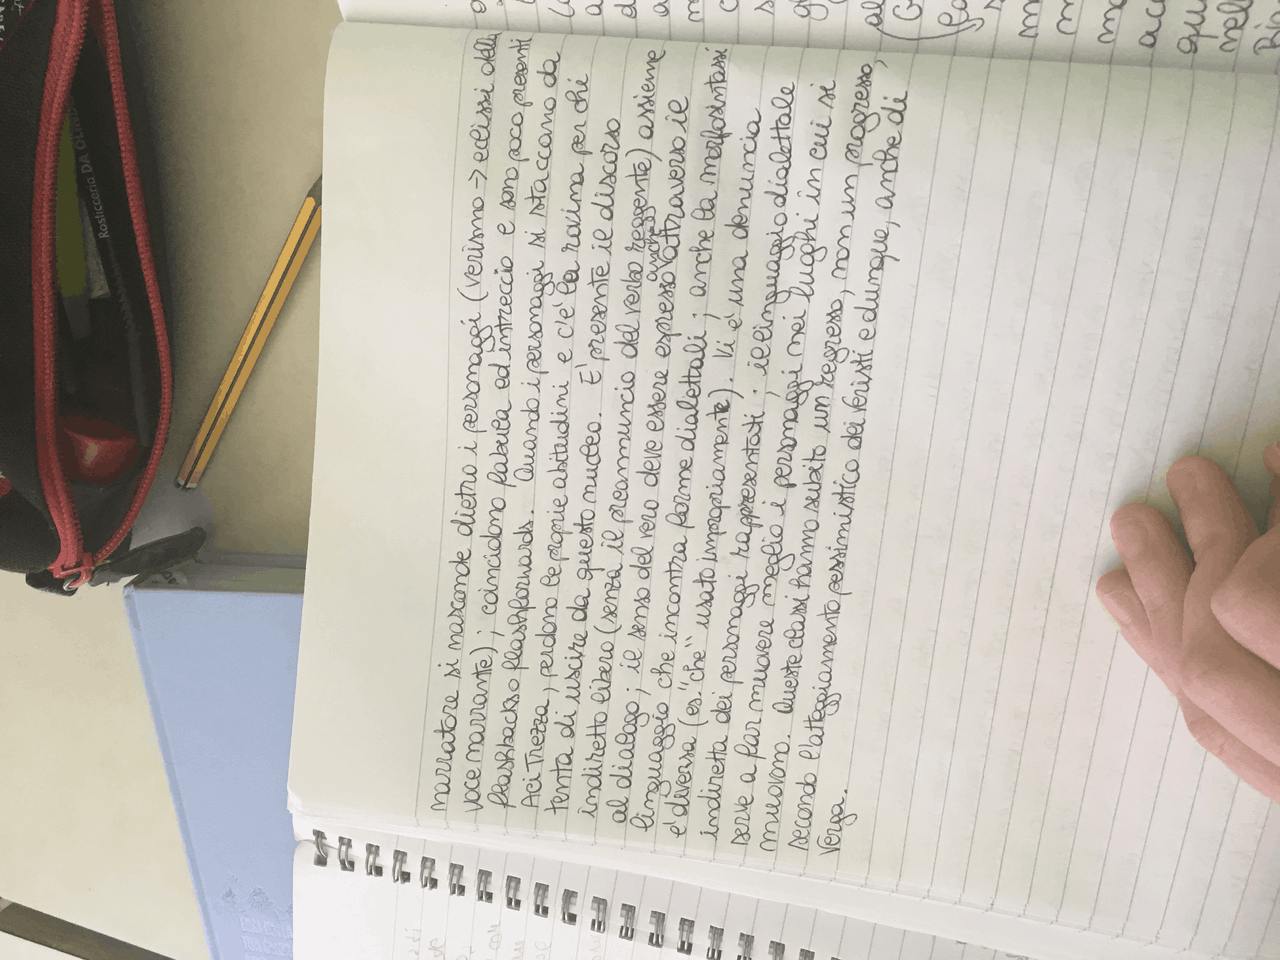 narratore si nasconde dietro i personaggi (verismo → eclissi della
voce narrante); coincidono fabula ed intreccio e sono poco presenti
flashbacks o flashforwards. Quando i personaggi si staccano da
Aci Trezza, perdono le proprie abitudini e c'è la rovina per chi
tenta di uscire da questo nucleo. E' presente il discorso
indiretto libero (senza il preannuncio del verbo reggente) assieme
al dialogo; il senso del vero deve essere espresso anche attraverso il
linguaggio che incontra forme dialettali; anche la morfosintassi
è diversa (es. "che" usato impropriamente). Vi è una denuncia
indiretta dei personaggi rappresentati; il linguaggio dialettale
serve a far muovere meglio i personaggi nei luoghi in cui si
muovono. Queste classi hanno subito un regresso, non un progresso,
secondo l'atteggiamento pessimistico dei veristi e dunque, anche di
Verga.
Rosticceria DA